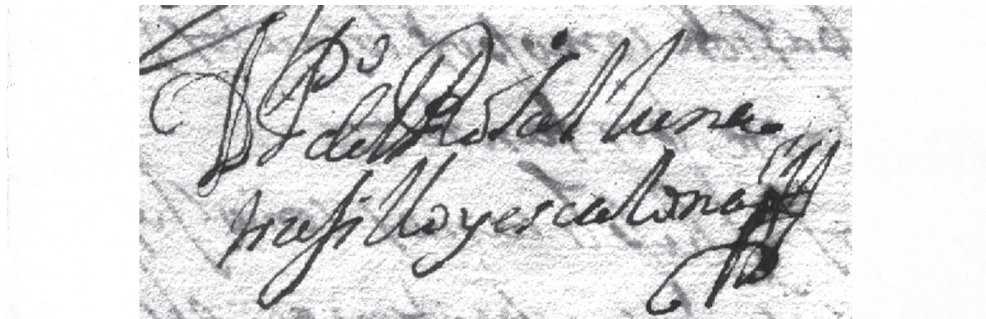 D P.º del Rosal luna
trujillo y escalona